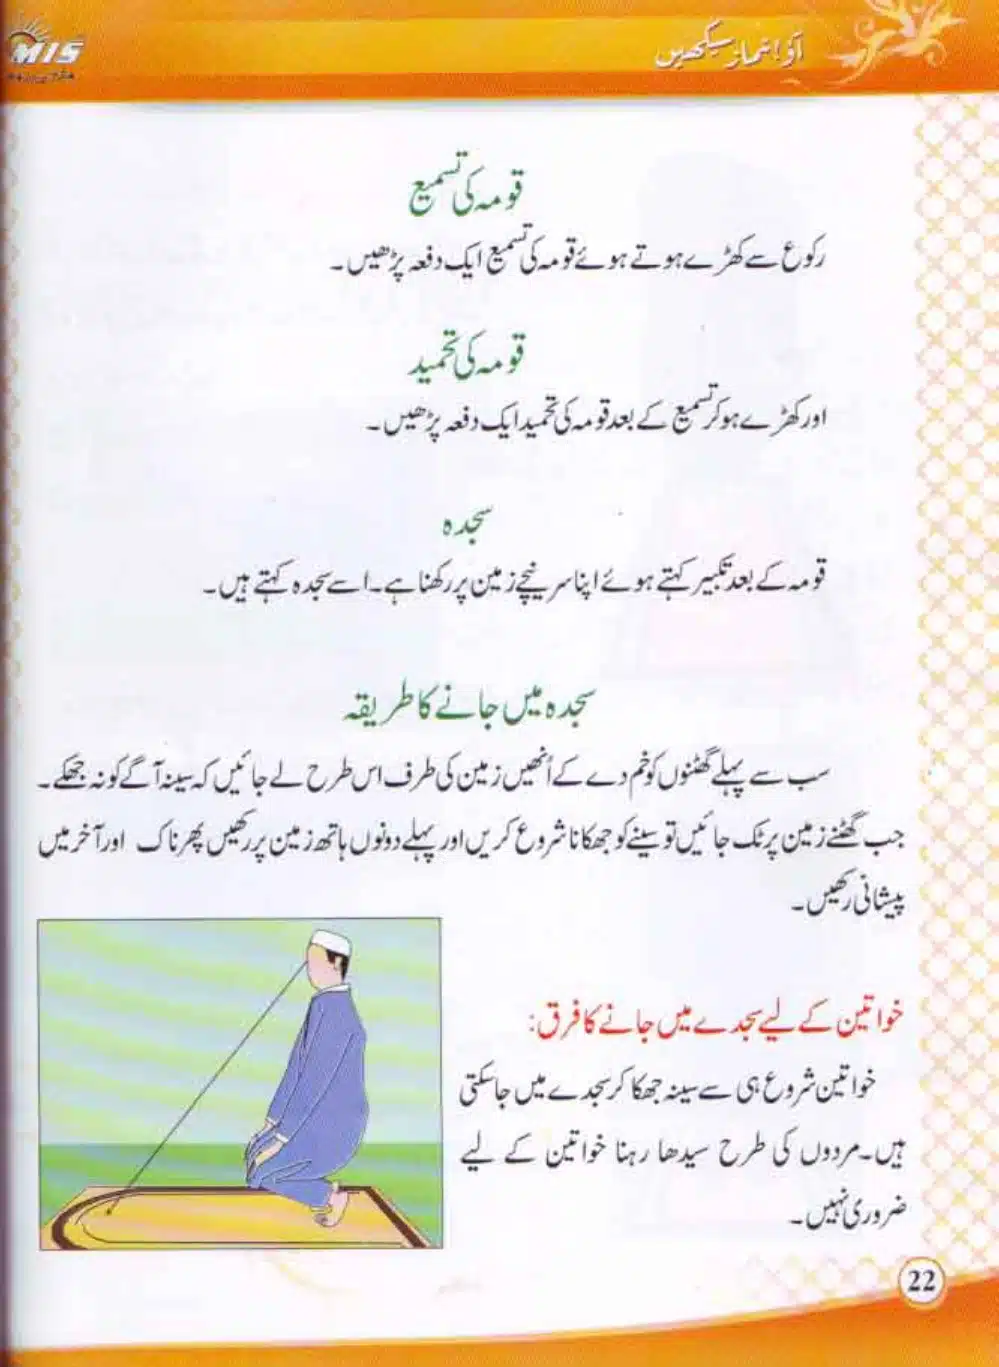 MIS
آؤ! نماز سیکھیں
قومہ کی تسمیع
رکوع سے کھڑے ہوتے ہوئے قومہ کی تسمیع ایک دفعہ پڑھیں۔
قومہ کی تحمید
اور کھڑے ہو کر تسمیع کے بعد قومہ کی تحمید ایک دفعہ پڑھیں۔
سجدہ
قومہ کے بعد تکبیر کہتے ہوئے اپنا سر نیچے زمین پر رکھنا ہے۔ اسے سجدہ کہتے ہیں۔
سجدہ میں جانے کا طریقہ
سب سے پہلے گھٹنوں کو خم دے کے اُنھیں زمین کی طرف اس طرح لے جائیں کہ سینہ آگے کو نہ جھکے۔
جب گھٹنے زمین پر ٹک جائیں تو سینے کو جھکانا شروع کریں اور پہلے دونوں ہاتھ زمین پر رکھیں پھر ناک اور آخر میں
پیشانی رکھیں۔
خواتین کے لیے سجدے میں جانے کا فرق:
خواتین شروع ہی سے سینہ جھکا کر سجدے میں جا سکتی
ہیں۔ مردوں کی طرح سیدھا رہنا خواتین کے لیے
ضروری نہیں۔
22